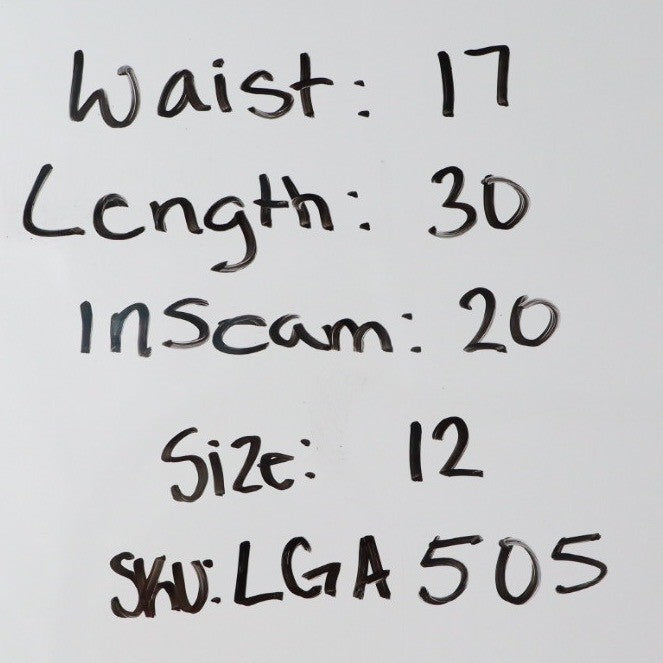 Waist: 17
Length: 30
Inseam: 20
Size: 12
SKU: LGA 505